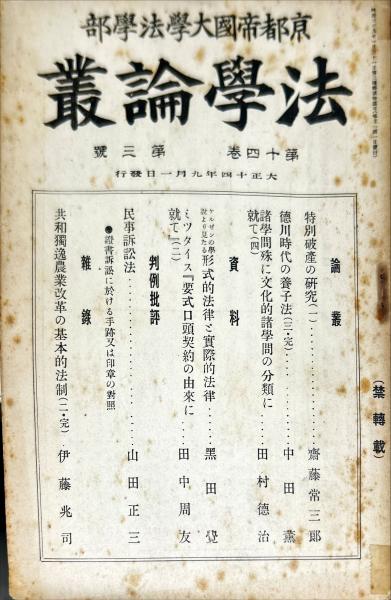 京都帝國大學法學部
法學論叢
第十四卷　第三號
大正十四年九月一日發行
(禁轉載)
論叢
特別破產の研究(一)……齋藤常三郎
德川時代の養子法(三・完)……中田薰
諸學問殊に文化的諸學問の分類に就て(四)……田村德治
資料
ケルゼンの學說より見たる形式的法律と實際的法律……黑田覺
ミツタイス『要式口頭契約の由來に就て(二)……田中周友
判例批評
民事訴訟法……山田正三
●證書訴訟に於ける手跡又は印章の對照
雜錄
共和獨逸農業改革の基本的法制(二・完)　伊藤兆司